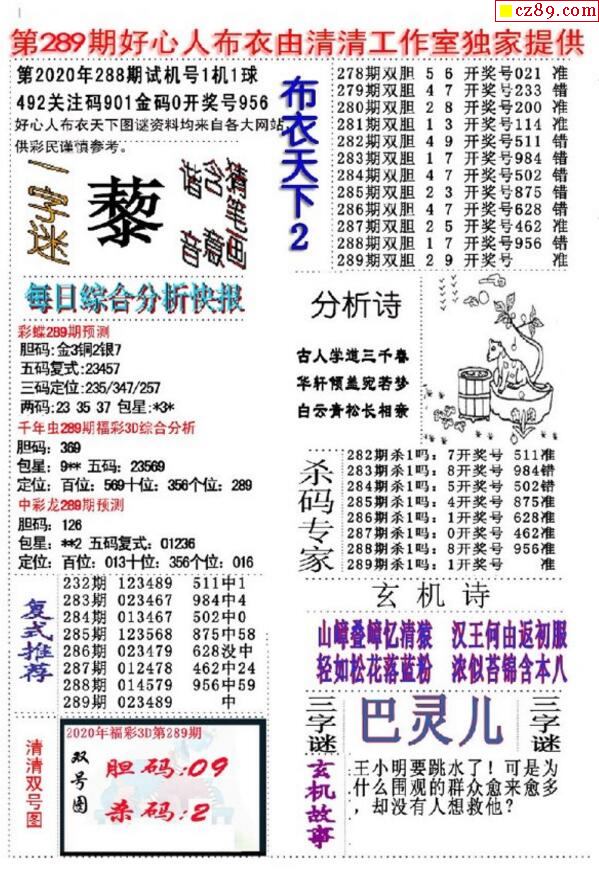 cz89.com
第289期好心人布衣由清清工作室独家提供
第2020年288期试机号1机1球
492关注码901金码0开奖号956
好心人布衣天下图谜资料均来自各大网站,
供彩民谨慎参考。
一字迷
藜
猜笔画
含意
谐音
每日综合分析快报
彩蝶289期预测
胆码:金3铜2银7
五码复式:23457
三码定位:235/347/257
两码:23 35 37 包星:*3*
千年虫289期福彩3D综合分析
胆码:369
包星:9** 五码:23569
定位:百位:569十位:356个位:289
中彩龙289期预测
胆码:126
包星:**2 五码复式:01236
定位:百位:013十位:356个位:016
复式推荐
232期 123489 511中1
283期 023467 984中4
284期 013467 502中0
285期 123568 875中58
286期 023479 628没中
287期 012478 462中24
288期 014579 956中59
289期 023489 中
清清双号图
2020年福彩3D第289期
双号图
胆码:09
杀码:2
布衣天下2
278期双胆 5 6 开奖号021 准
279期双胆 4 7 开奖号233 错
280期双胆 2 8 开奖号200 准
281期双胆 1 3 开奖号114 准
282期双胆 4 9 开奖号511 错
283期双胆 1 7 开奖号984 错
284期双胆 4 7 开奖号502 错
285期双胆 2 3 开奖号875 错
286期双胆 4 7 开奖号628 错
287期双胆 2 5 开奖号462 准
288期双胆 1 7 开奖号956 错
289期双胆 2 9 开奖号 准
分析诗
古人学道三千春
华轩倾盖宛若梦
白云青松长相亲
杀码专家
282期杀1吗:7开奖号 511准
283期杀1吗:8开奖号 984错
284期杀1吗:5开奖号 502错
285期杀1吗:4开奖号 875准
286期杀1吗:1开奖号 628准
287期杀1吗:0开奖号 462准
288期杀1吗:8开奖号 956准
289期杀1吗:1开奖号 准
玄机诗
山嶂叠嶂忆清猿 汉王何由返初服
轻如松花落蓝粉 浓似苔锦含本八
三字谜
巴灵儿
三字谜
玄机故事
王小明要跳水了!可是为
什么围观的群众愈来愈多
,却没有人想救他?